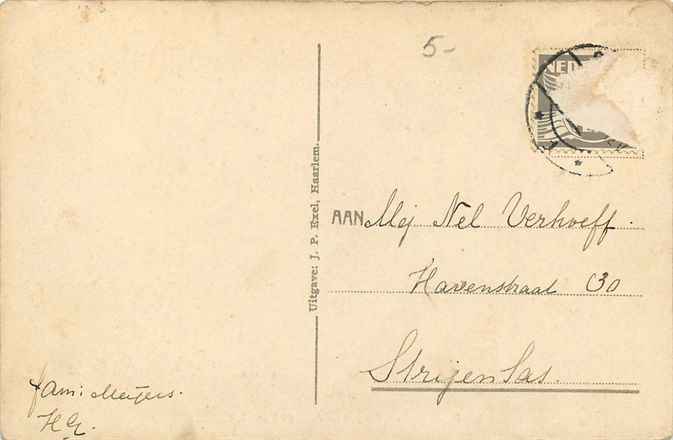 5-
NED
Uitgave: J. P. Exel, Haarlem.
AAN Mej Nel Verhoeff.
Havenstraat 30
Strijen Sas.
fam: Meijers.